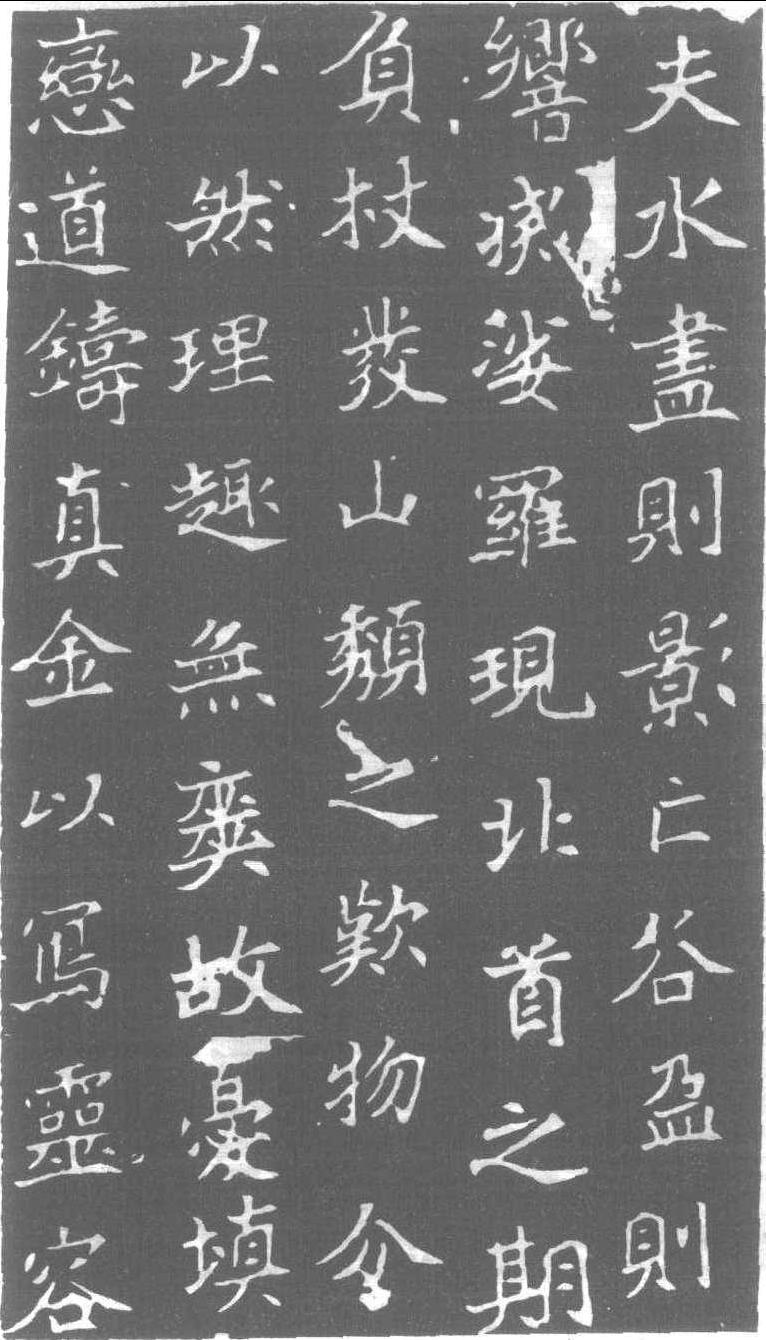 夫水盡則影亡谷盈則
響娑羅現北首之期
負杖發山頹之歎物分
以然理趣無爽故憂填
戀道鑄真金以寫靈容